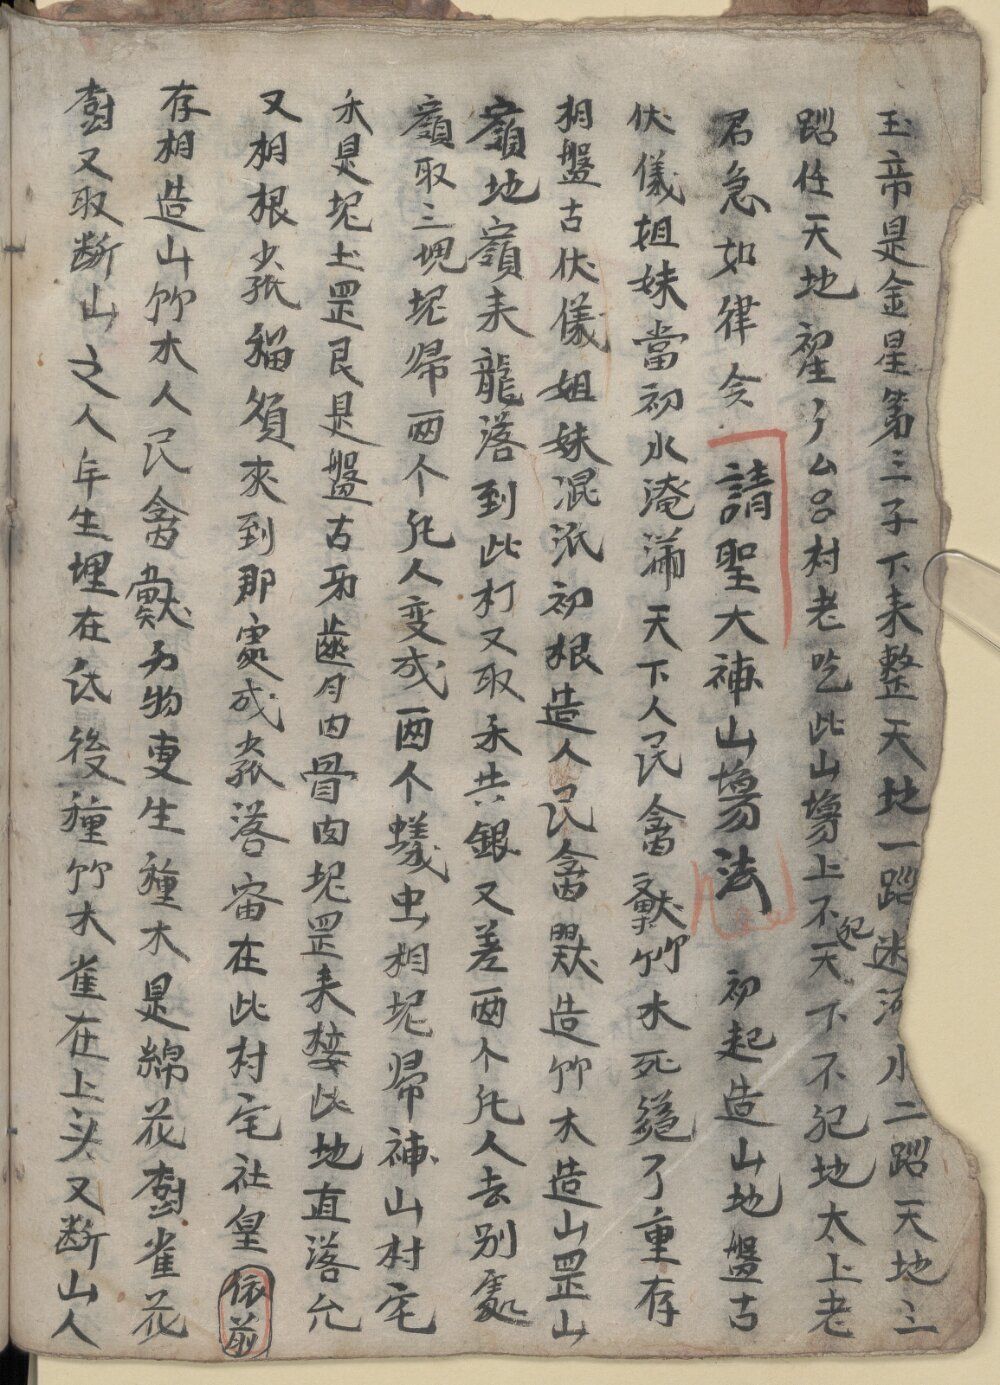 玉帝是金星第三子下来整天地一蹈迷河小二蹈天地三
蹈任天地初星了么吕村老吃此山塲上不犯天下不犯地太上老
君急如律令 請聖大補山塲法 初起造山地盤古
伏儀姐妹當初水淹滿天下人民禽獸竹木死絕了重存
相盤古伏儀姐妹混沠初根造人民禽獸造竹木造山罡山
嶺地嶺来龍落到此村又取禾共銀又差兩个凡人去别處
嶺取三塊坭帰兩个凡人变成兩个蟻虫相坭帰補山村宅
禾是坭土罡艮是盤古牙齒月内骨肉坭罡来接此地直落允
又相根夯猫須來到那處成夯落宙在此村宅社皇依前
存相造山竹木人民禽獸万物更生種木是綿花樹雀花
樹又取断山之人年生埋在氐後種竹木雀在上头又断山人